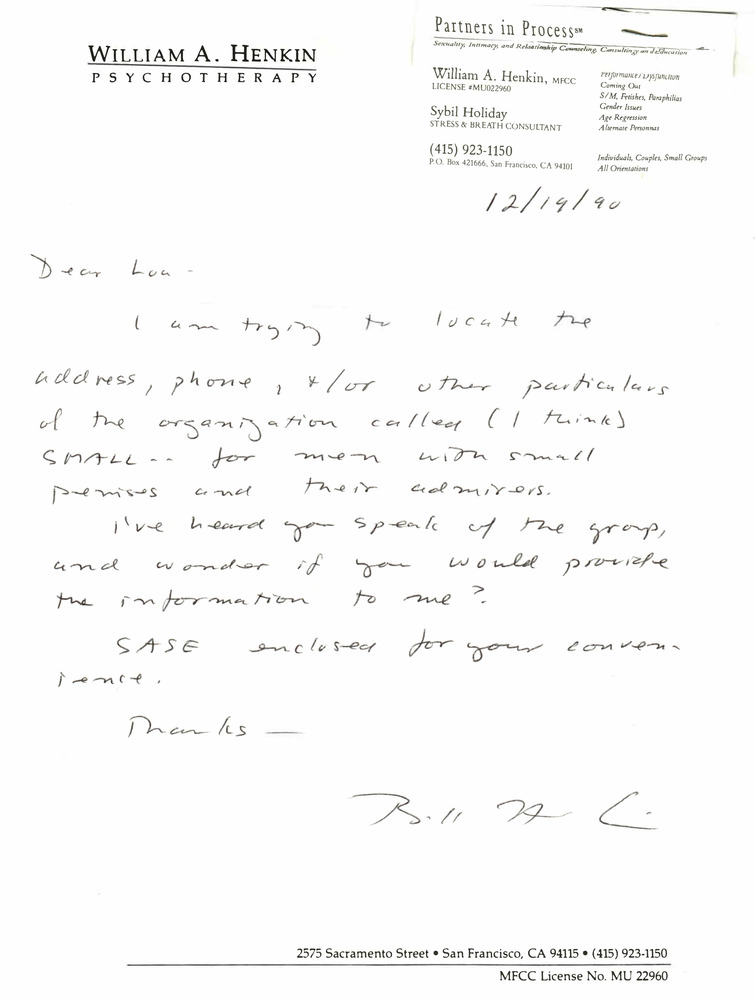 WILLIAM A. HENKIN
PSYCHOTHERAPY
Partners in Process℠
Sexuality, Intimacy, and Relationship Counseling, Consulting, and Education
William A. Henkin, MFCC
LICENSE #MU022960
Sybil Holiday
STRESS & BREATH CONSULTANT
(415) 923-1150
P.O. Box 421666, San Francisco, CA 94101
Performance/Dysfunction
Coming Out
S/M, Fetishes, Paraphilias
Gender Issues
Age Regression
Alternate Personnas
Individuals, Couples, Small Groups
All Orientations
12/19/90
Dear Lou -
I am trying to locate the
address, phone, &/or other particulars
of the organization called (I think)
SMALL -- for men with small
penises and their admirers.
I've heard you speak of the group,
and wonder if you would provide
the information to me?
SASE enclosed for your conven-
ience.
Thanks —
Bill Henkin
2575 Sacramento Street • San Francisco, CA 94115 • (415) 923-1150
MFCC License No. MU 22960